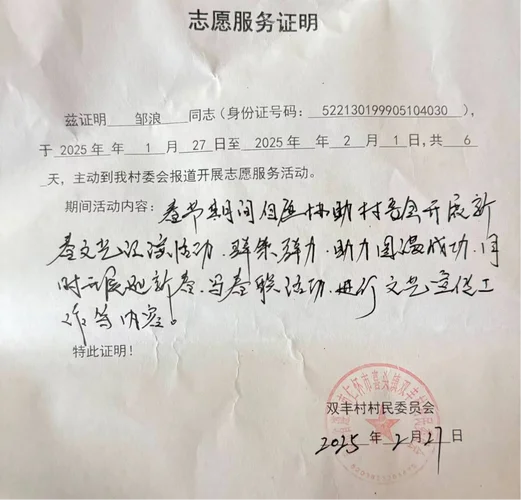 志愿服务证明
兹证明 邹浪 同志（身份证号码： 522130199905104030 ），
于 2025 年 年 1 月 27 日至 2025 年 年 2 月 1 日，共 6
天，主动到我村委会报道开展志愿服务活动。
期间活动内容：春节期间 协助村委会开展新
春文艺汇演活动，群策群力，助力圆满成功，同
时开展迎新春、写春联活动，进行文艺宣传工
作等内容。
特此证明！
仁怀市喜头镇双丰村
双丰村村民委员会
2025 年 2 月 27 日